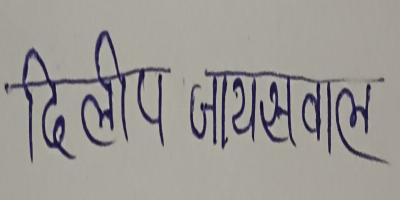 दिलीप जायसवाल